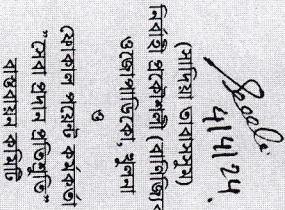 4/4/24.
(সাদিয়া তাবাসসুম)
নির্বাহী প্রকৌশলী (বাণিজ্য
ওজোপাডিকো, খুলনা
ও
ফোকাল পয়েন্ট কর্মকর্তা
"সেবা প্রদান প্রতিশ্রুতি"
বাস্তবায়ন কমিটি